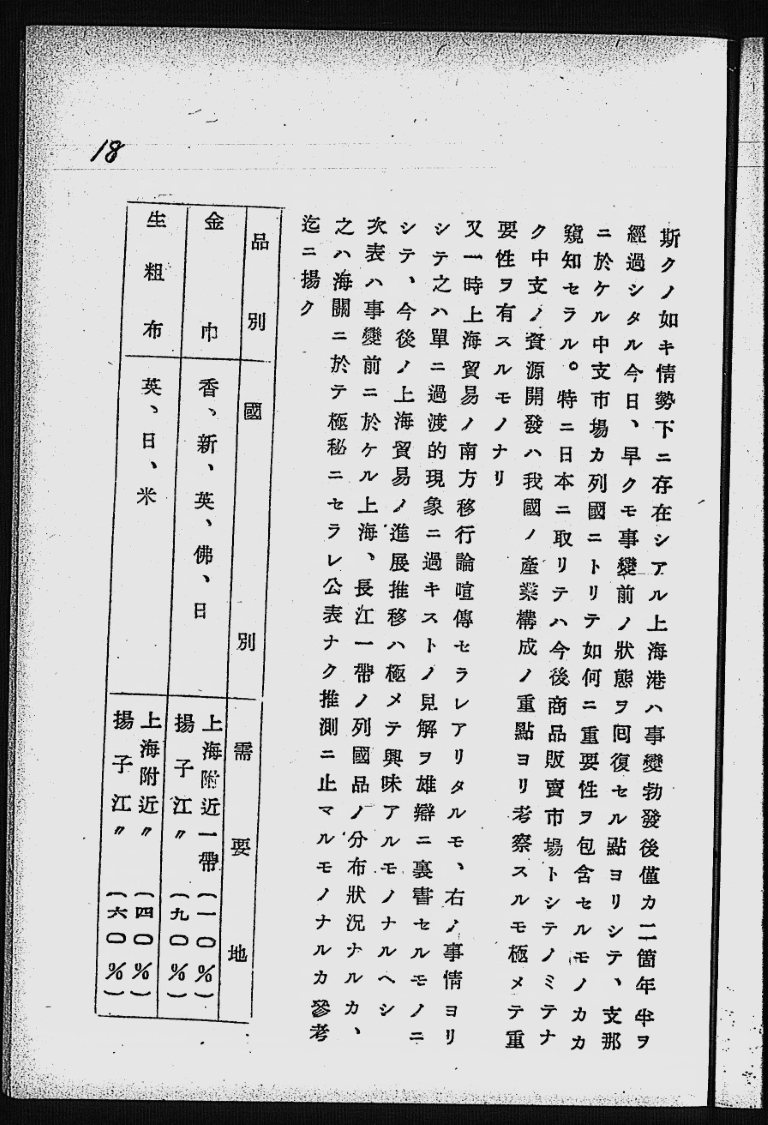 18
斯クノ如キ情勢下ニ存在シアル上海港ハ事變勃發後僅カ二箇年半ヲ
經過シタル今日、早クモ事變前ノ狀態ヲ囘復セル點ヨリシテ、支那
ニ於ケル中支市場カ列國ニトリテ如何ニ重要性ヲ包含セルモノカカ
窺知セラル。特ニ日本ニ取リテハ今後商品販賣市場トシテノミテナ
ク中支ノ資源開發ハ我國ノ產業構成ノ重點ヨリ考察スルモ極メテ重
要性ヲ有スルモノナリ
又一時上海貿易ノ南方移行論喧傳セラレアリタルモ、右ノ事情ヨリ
シテ之ハ單ニ過渡的現象ニ過キストノ見解ヲ雄辯ニ裏書セルモノニ
シテ、今後ノ上海貿易ノ進展推移ハ極メテ興味アルモノナルヘシ
次表ハ事變前ニ於ケル上海、長江一帶ノ列國品ノ分布狀況ナルカ、
之ハ海關ニ於テ極秘ニセラレ公表ナク推測ニ止マルモノナルカ參考
迄ニ揚ク
品別 國別 需要地
金巾 香、新、英、佛、日 上海附近一帶(一〇%)
揚子江〃(九〇%)
生粗布 英、日、米 上海附近〃(四〇%)
揚子江〃(六〇%)